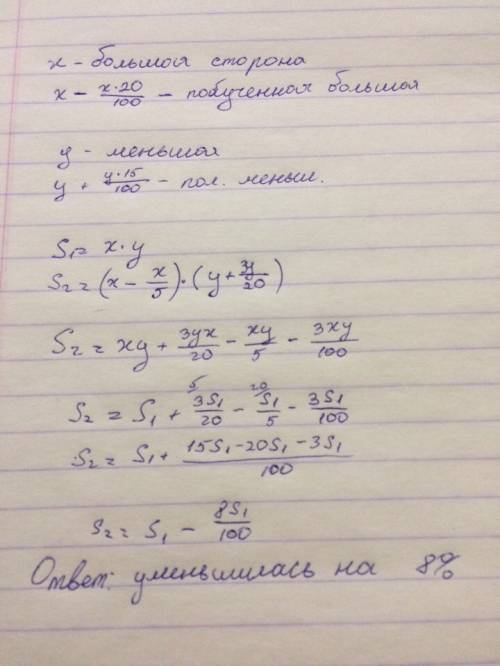 x - большая сторона
x - x·20/100 - полученная большая
y - меньшая
y + y·15/100 - пол. меньш.
S₁ = x·y
S₂ = (x - x/5)·(y + 3y/20)
S₂ = xy + 3yx/20 - xy/5 - 3xy/100
S₂ = S₁ + ⁵ 3S₁/20 - ²⁰ S₁/5 - 3S₁/100
S₂ = S₁ + 15S₁ - 20S₁ - 3S₁/100
S₂ = S₁ - 8S₁/100
Ответ: уменьшилась на 8%